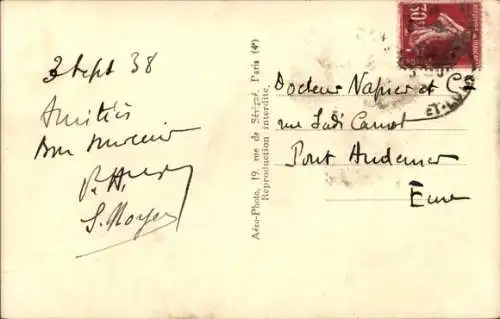 3 Sept 38
Amitiés
Bon souvenir
Aéro-Photo, 19, rue de Sévigné, Paris (4e)
Reproduction interdite.
50
Docteur Napier et Cie
rue Sadi Carnot
Pont Audemer
Eure
ET-LO